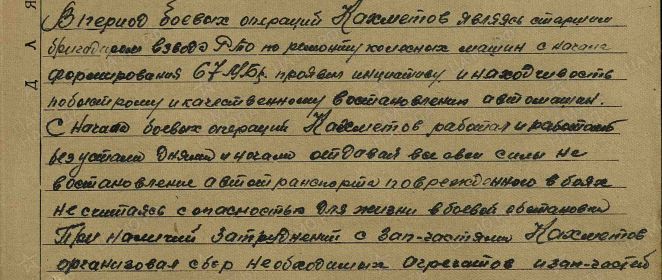 В период боевых операций Нахметов являясь старшим
бригадиром взвода РТО по ремонту колесных машин с начала
формирования 67 МБр. проявил инициативу и находчивость
по быстрому и качественному востановлению автомашин.
С начала боевых операций Нахметов работал и работает
без устали днями и ночами отдавая все свои силы на
востановление автотранспорта поврежденного в боях
не считаясь с опасностью для жизни в боевой обстановке
При наличии затруднений с зап-частями Нахметов
организовал сбор необходимых агрегатов и зап-частей
Д Л Я